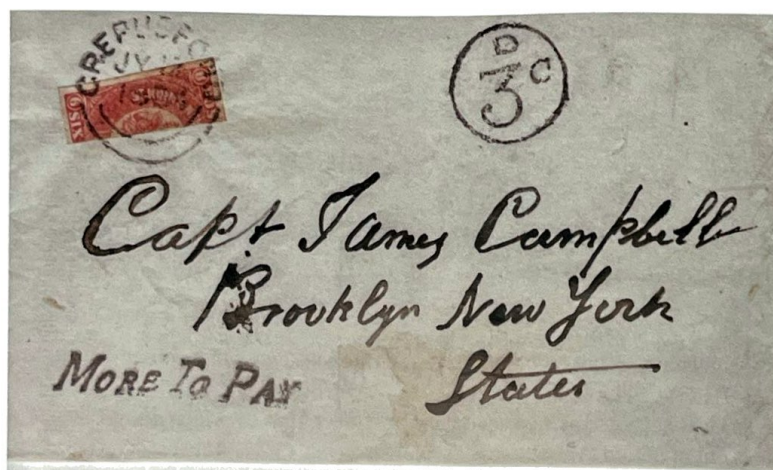 D
3 C
6 SIX
Capt James Campbell
Brooklyn New York
States
MORE TO PAY